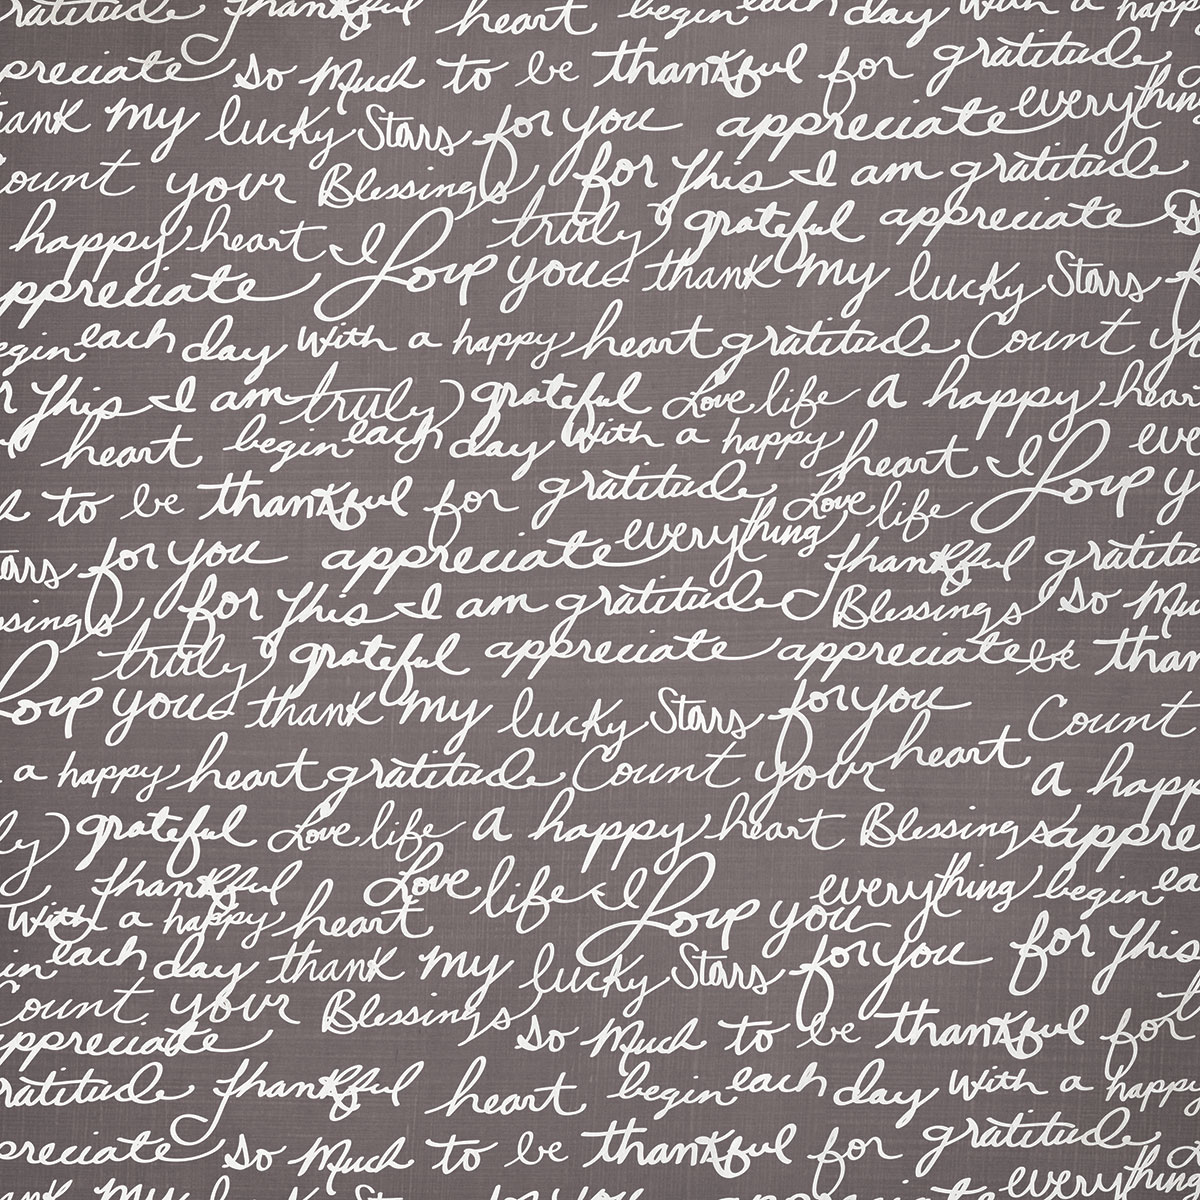 gratitude thankful heart begin each day with a happy
preciate so much to be thankful for gratitude
thank my lucky stars for you appreciate everything
Count your Blessings for this I am gratitude
happy heart I truly grateful appreciate
ppreciate Love you thank my lucky stars
egin each day with a happy heart gratitude Count yo
r this I am truly grateful Love life A happy hear
heart begin each day with a happy heart I Love y eve
to be thankful for gratitude Love life
tars for you appreciate everything thankful gratitu
ssings for this I am gratitude Blessings so mu
truly grateful appreciate appreciate be than
Love you thank my lucky stars for you Count
a happy heart gratitude Count your heart a happ
ly grateful Love life A happy heart Blessings appre
thankful Love life I Love you everything begin ea
with a happy heart
in each day thank my lucky stars for you for this
Count your Blessings so much to be thankful for
appreciate
ratitude thankful heart begin each day with a happy
reciate so much to be thankful for gratitude
ank my lucky stars for you appreciate everything